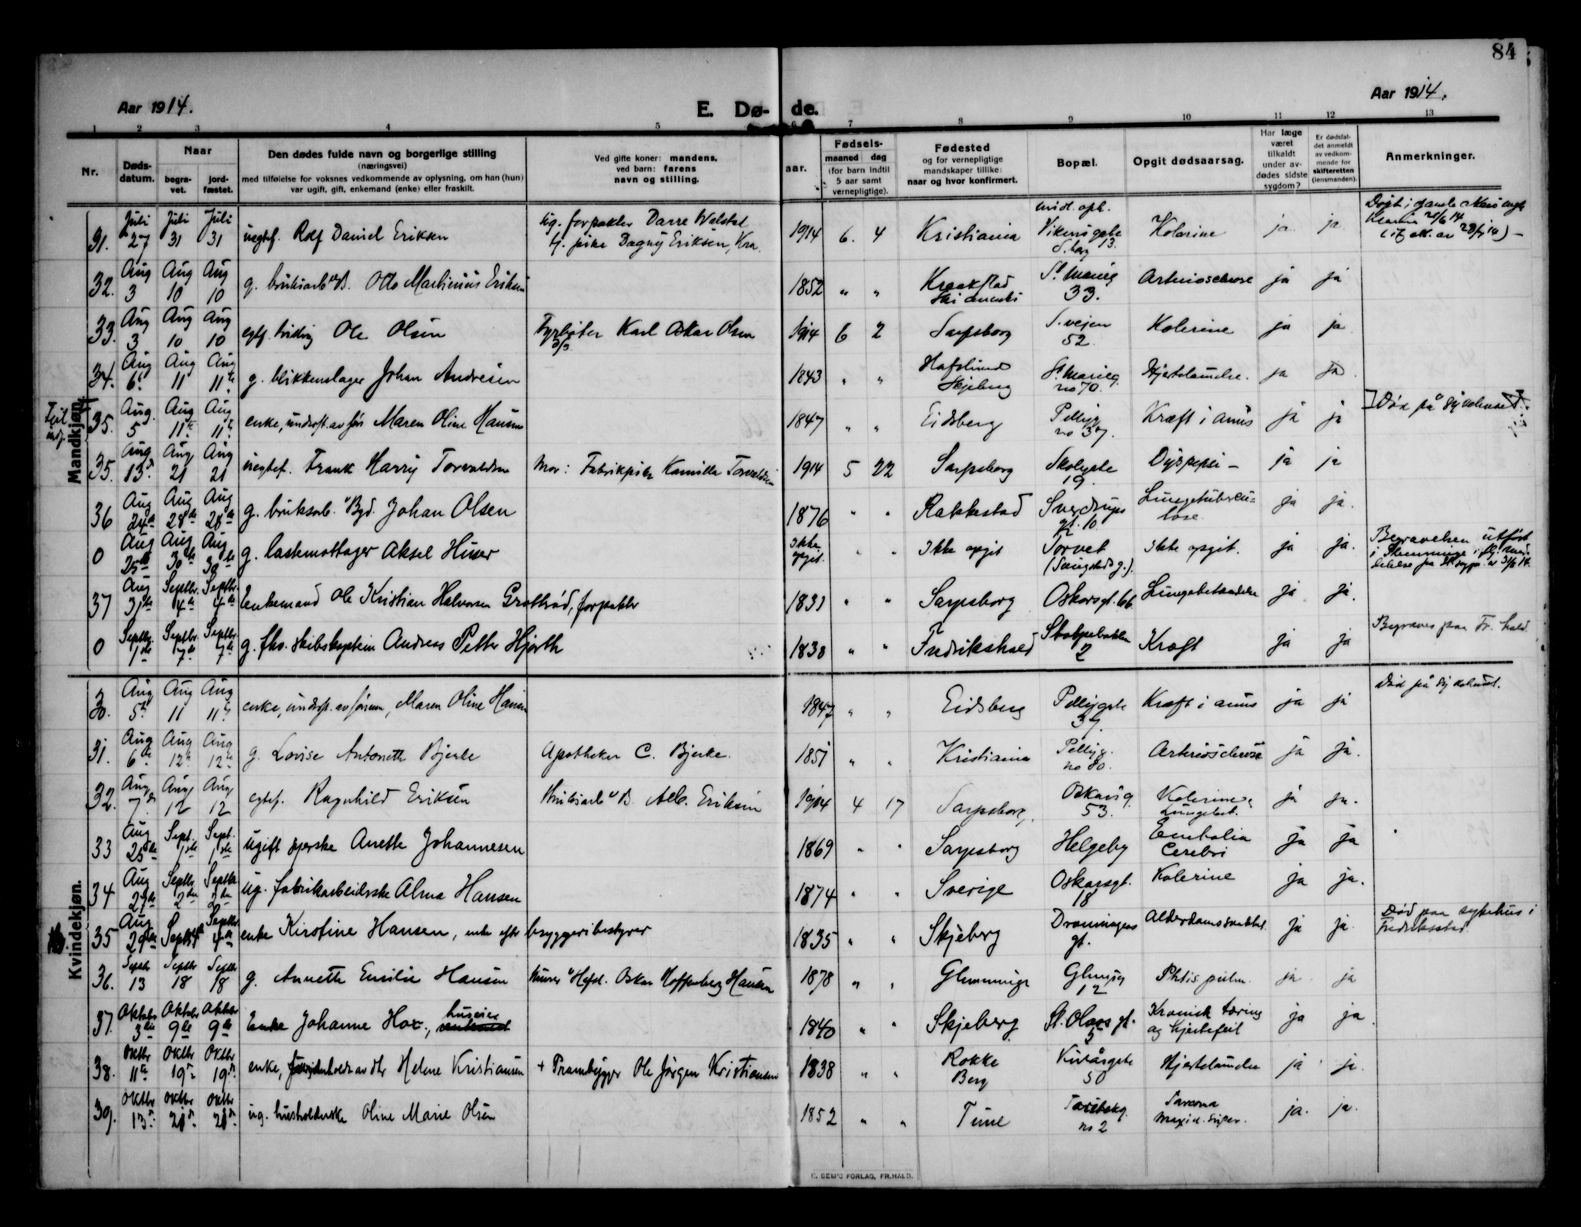 84
Aar 1914.
E. Dø- de.
Aar 1914.
1 2 3 4 5 6 7 8 9 10 11 12 13
Nr. Døds-datum. Naar begra-vet. jord-fæstet. Den dødes fulde navn og borgerlige stilling (næringsvei) med tilføielse for voksnes vedkommende av oplysning, om han (hun) var ugift, gift, enkemand (enke) eller fraskilt. Ved gifte koner: mandens. ved barn: farens navn og stilling. aar. Fødsels- maaned dag (for barn indtil 5 aar samt vernepligtige). Fødested og for vernepligtige mandskaper tillike: naar og hvor konfirmert. Bopæl. Opgit dødsaarsag. Har læge været tilkaldt under av-dødes sidste sygdom? Er dødsfal-det anmeldt av vedkom-mende for skifteretten (lensmanden). Anmerkninger.
Mandkjøn.
31. Juli 27 Juli 31 Juli 31 uegtef. Rolf Daniel Eriksen ug. forpakter Darre Walstad, / pike Dagny Eriksen, Kra. 1914 6. 4 Kristiania midl. oph. Vikensgate 13. Kolerine ja ja
32. Aug 3 Aug 10 Aug 10 g. bruksarb. Otto Martinius Eriksen 1852 " " Kraakstad St. Marieg 33. Arteriosclerose ja ja
33. Aug 3 Aug 10 Aug 10 egtf. tvilling Ole Olsen Fyrbøter Karl Oskar Olsen 1914 6 2 Sarpsborg 52. Kolerine ja ja
34. Aug 6 Aug 11 Aug 11te g. blikkenslager Johan Andresen 1843 " " Hafslund Skjeberg St. Marieg. no 70. Hjertelammelse. ja ja
35. Aug. 5 Aug 11te Aug 11te enke, underst. av før. Maren Oline Hansen 1847 " " Eidsberg Pellyg no 37. Kræft i anus ja ja Død på sykehuset.
35. Aug 13. Aug 21 Aug 21 uegtef. Frank Harry Torvaldsen Mor: Fabrikpike Kamilla Torvaldsen 1914 5 22 Sarpsborg Skolegate 19. Dyspepsi ja ja
36 Aug 24de Aug 28de Aug 28de g. bruksarb. Johan Olsen 1876 " " Rakkestad Sverdrups gt. 10 Lungetuberculose ja ja.
0 Aug 25de Aug 30te Aug 30te g. lastemottager Aksel Huser Ikke opgit. " " Ikke opgit Torvet Ikke opgit. ja ja. Begravelsen utført i Glemminge
37 Aug 31te Septbr. 4de Septbr. 4de Enkemand Ole Kristian Halvorsen Grotterød, forpakter 1831 " " Sarpsborg Oskarsgt. 66 Lungebetændelse ja ja.
0 Septbr. 1ste Septbr. 7de Septbr. 7de g. fhv. skibskaptein Andreas Petter Hjorth 1838 " " Fredrikshald 2 Kræft ja ja Begraves paa Fr. hald.
Kvindekjøn.
30. Aug 5te Aug 11 Aug 11te enke, underst. av, Maren Oline Hansen 1847 " " Eidsberg Pellygate 37. Kræft i anus ja ja Død på sykehuset.
31. Aug 6te Aug 12te Aug 12te g. Lovise Antonette Bjerke Apotheker C. Bjerke. 1851 " " Kristiania Pellyg. no 80. Arteriosclerose ja ja.
32. Aug 7de Aug 12 Aug 12 egtef. Ragnhild Eriksen Alb. Eriksen 1914 4 17 Sarpsborg, Oskarsg. 53. Kolerine ja ja.
33 Aug 25de Sept. 1ste Sept. 1ste ugift syerske Anette Johannesen 1869 " " Sarpsborg Helgeby Embolia Cerebri ja ja
34 Aug 27de Septbr 2den Septbr 2den ug. fabrikarbeiderske Alma Hansen 1874 " " Sverige Oskarsgt. 18 Kolerine ja ja.
35 Aug 29de Septbr 4de Septbr 4de enke Kirstine Hansen, enke efter bryggeribestyrer 1835 " " Skjeberg Dronningens gt. Alderdomssvakhet ja ja. Død paa sykehus i Fredriksstad
36. Septb 13 Septbr 18 Septbr 18 g. Annette Emilie Hansen Murer Oskar Hoffenberg Hansen 1878 " " Glemminge Glengsg 12 Phtis. pulm. ja ja
37. Oktober 3die Oktober 9de Oktober 9de Enke Johanne Hoz, huseier 1840 " " Skjeberg St. Olavs gt. Kronisk tæring og hjertefeil ja ja
38. Oktbr 11te Oktbr 19de Oktbr 19de enke, Helene Kristiansen + Prambygger Ole Jørgen Kristiansen 1838 " " Rokke Berg 50 Hjertelammelse ja ja.
39. Oktbr 13. Oktbr 20. Oktbr 20. ug. husholderske Oline Marie Olsen 1852 " " Tune no 2 Sarcoma ja. ja.
E. SEM'S FORLAG, FR.HALD.